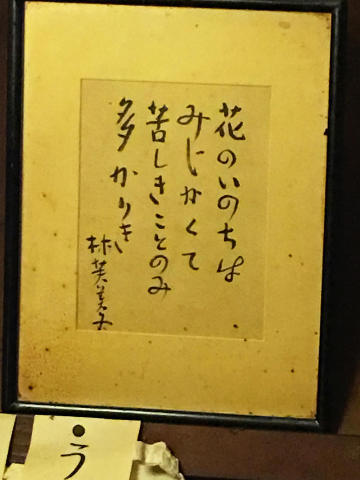 花のいのちは
みじかくて
苦しきことのみ
多かりき
林芙美子
う